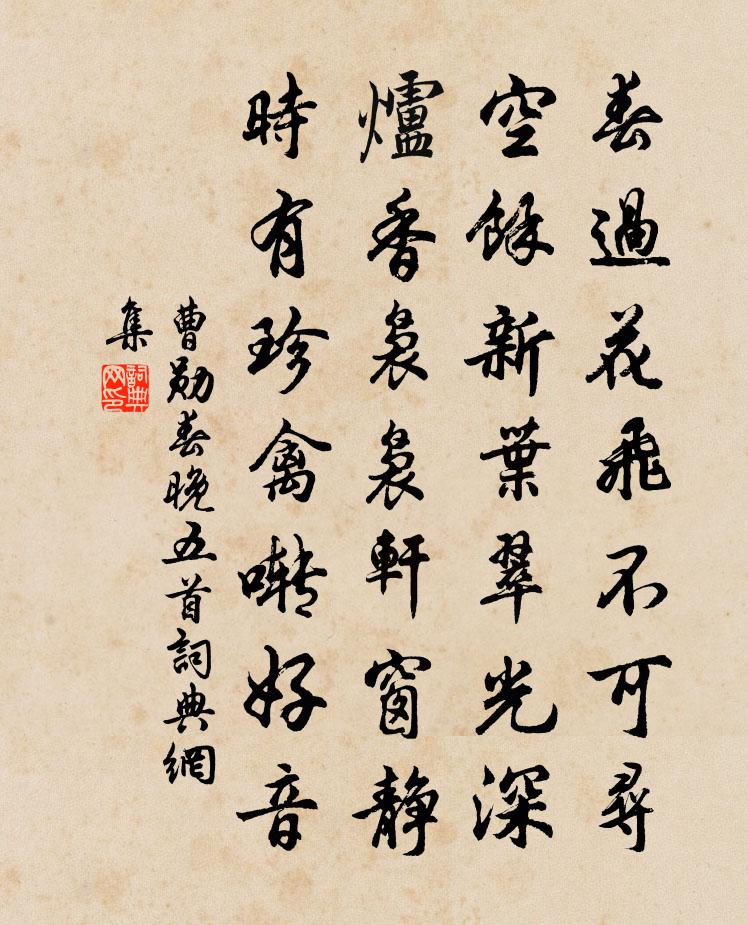 春過花飛不可尋
空餘新葉翠光深
爐香裊裊軒窗靜
時有珍禽囀好音
曹勛春晚五首詞典網
集
詞典
網印